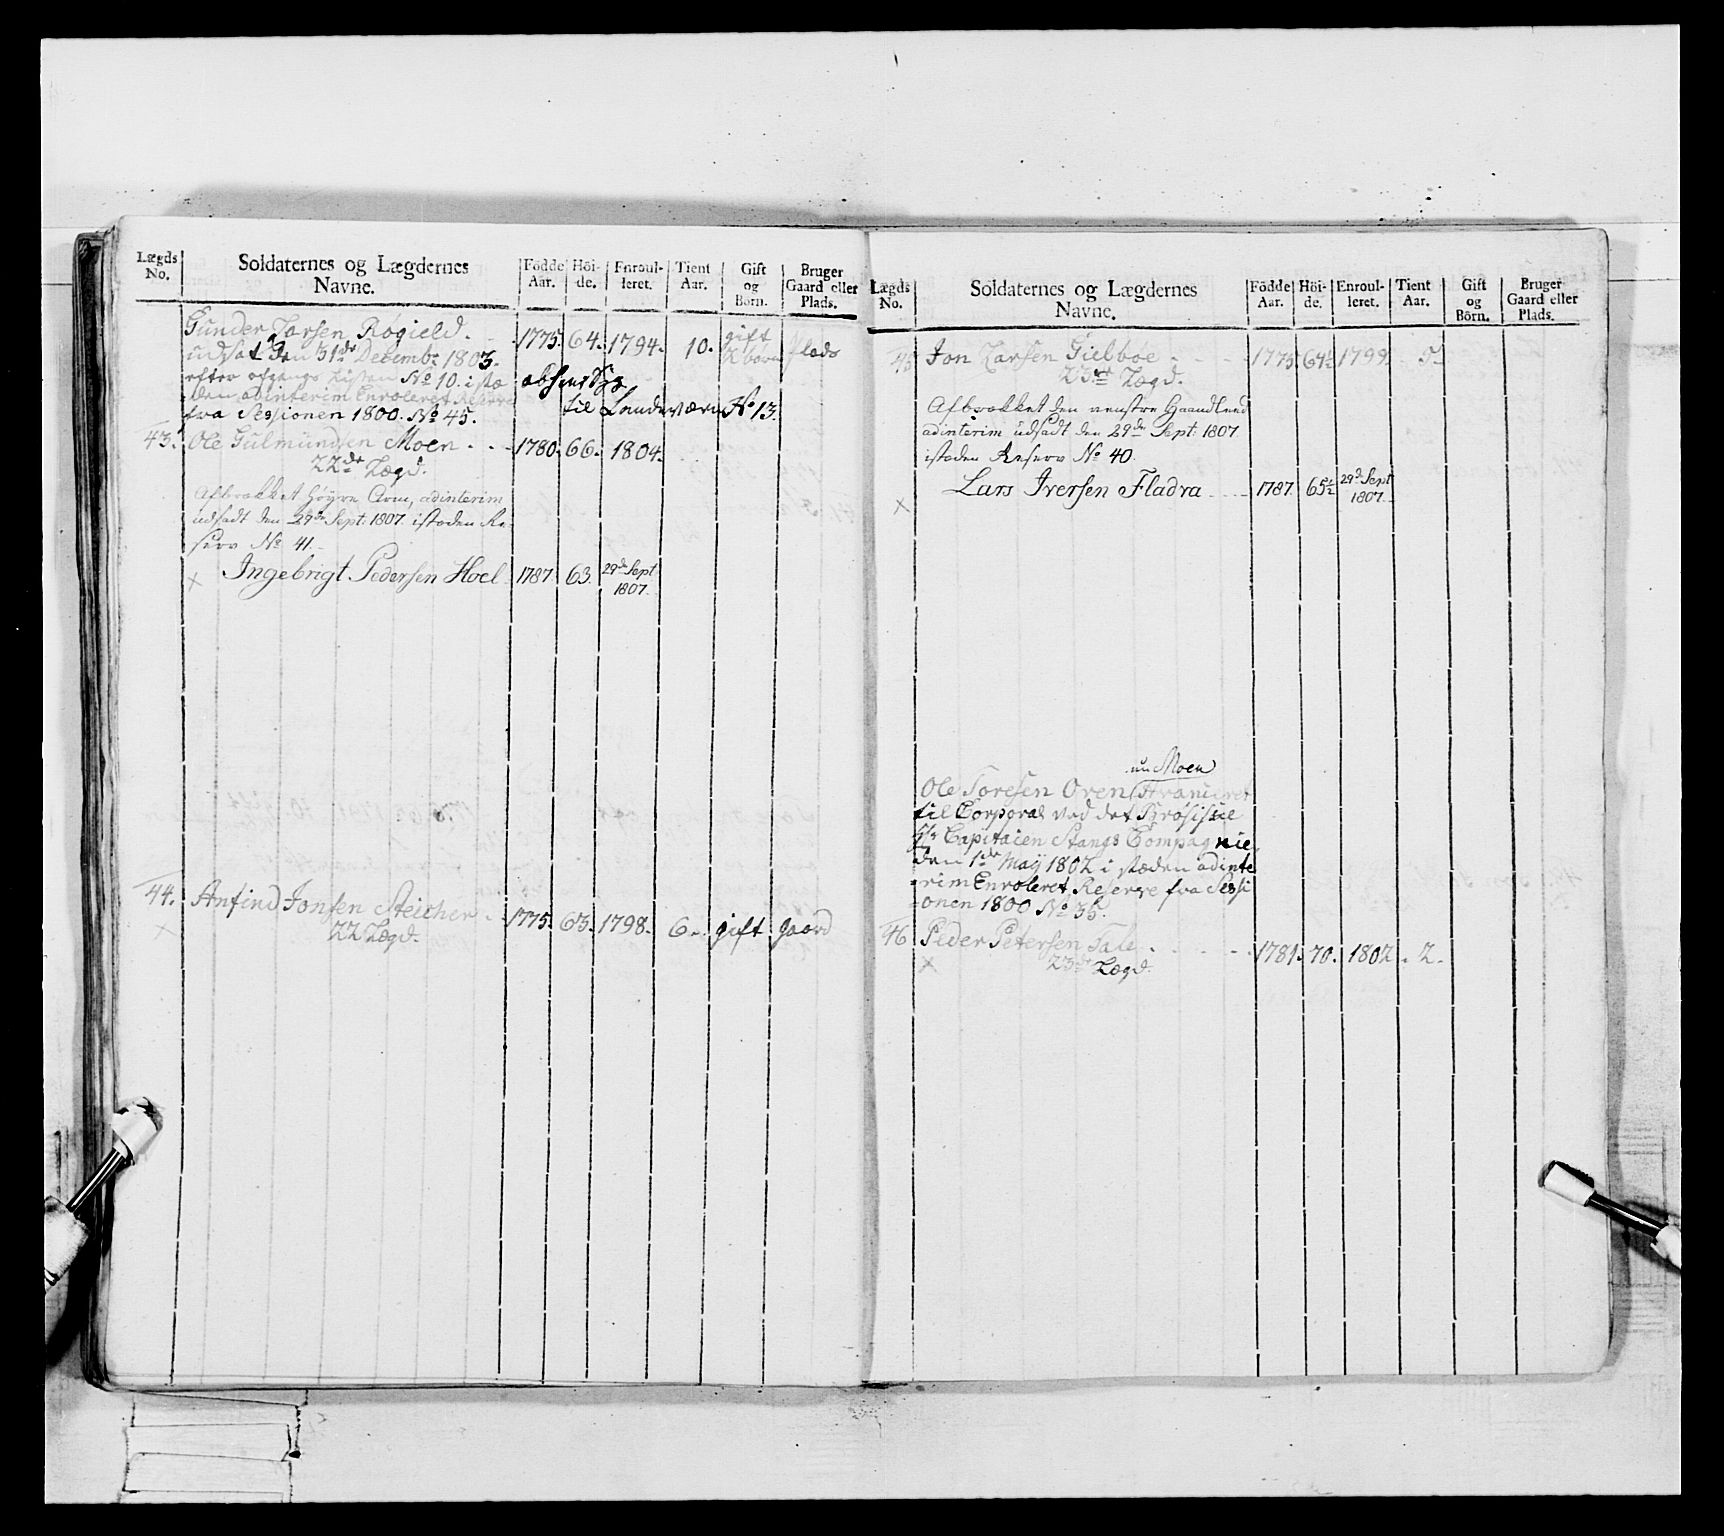 Lægds No. | Soldaternes og Lægdernes Navne. | Födde Aar. | Höi-de. | Enroul-leret. | Tient Aar. | Gift og Börn. | Bruger Gaard eller Plads.
Gunder Larsen Røgield. 1775. 64. 1794. 10. gift børn plads
udsat den 31de Decembr 1803.
efter afgangs Listen No 10. i stæ
den adinterim Enroleret Reserve
fra Sessionen 1800. No 45.
til Landeværn No 13.
43. Ole Gulmundsen Moen 1780. 66. 1804.
22de Lægd.
Afbrækket Høyre Arm, adinterim
udsadt den 29de Sept: 1807. istæden Re-
serv No 41.
x Ingebrigt Pedersen Hoel 1787. 63. 29de Sept 1807.
44. Anfind Jonsen Steicher 1775. 63. 1798. 6. gift gaard
x 22 Lægd.
Lægds No. | Soldaternes og Lægdernes Navne. | Födde Aar. | Höi-de. | Enroul-leret. | Tient Aar. | Gift og Börn. | Bruger Gaard eller Plads.
45 Jon Larsen Gielbøe 1775. 64½ 1799. 5.
23de Lægd.
Afbrækket den venstre Haandleed
adinterim udsadt den 29de Sept: 1807
istæden Reserv No 40.
x Lars Iversen Fladva 1787. 65½ 29de Sept 1807.
nu Moen
Ole Toresen Oren, Avanceret
til Corporal ved det
Capitaien Stangs Compagnie,
den 1de Maÿ 1802 i stæden adinte
rim Enroleret Reserve fra Sessi
onen 1800 No 35.
46 Peder Petersen Tale 1781. 70. 1802. 2.
x 23de Lægd.